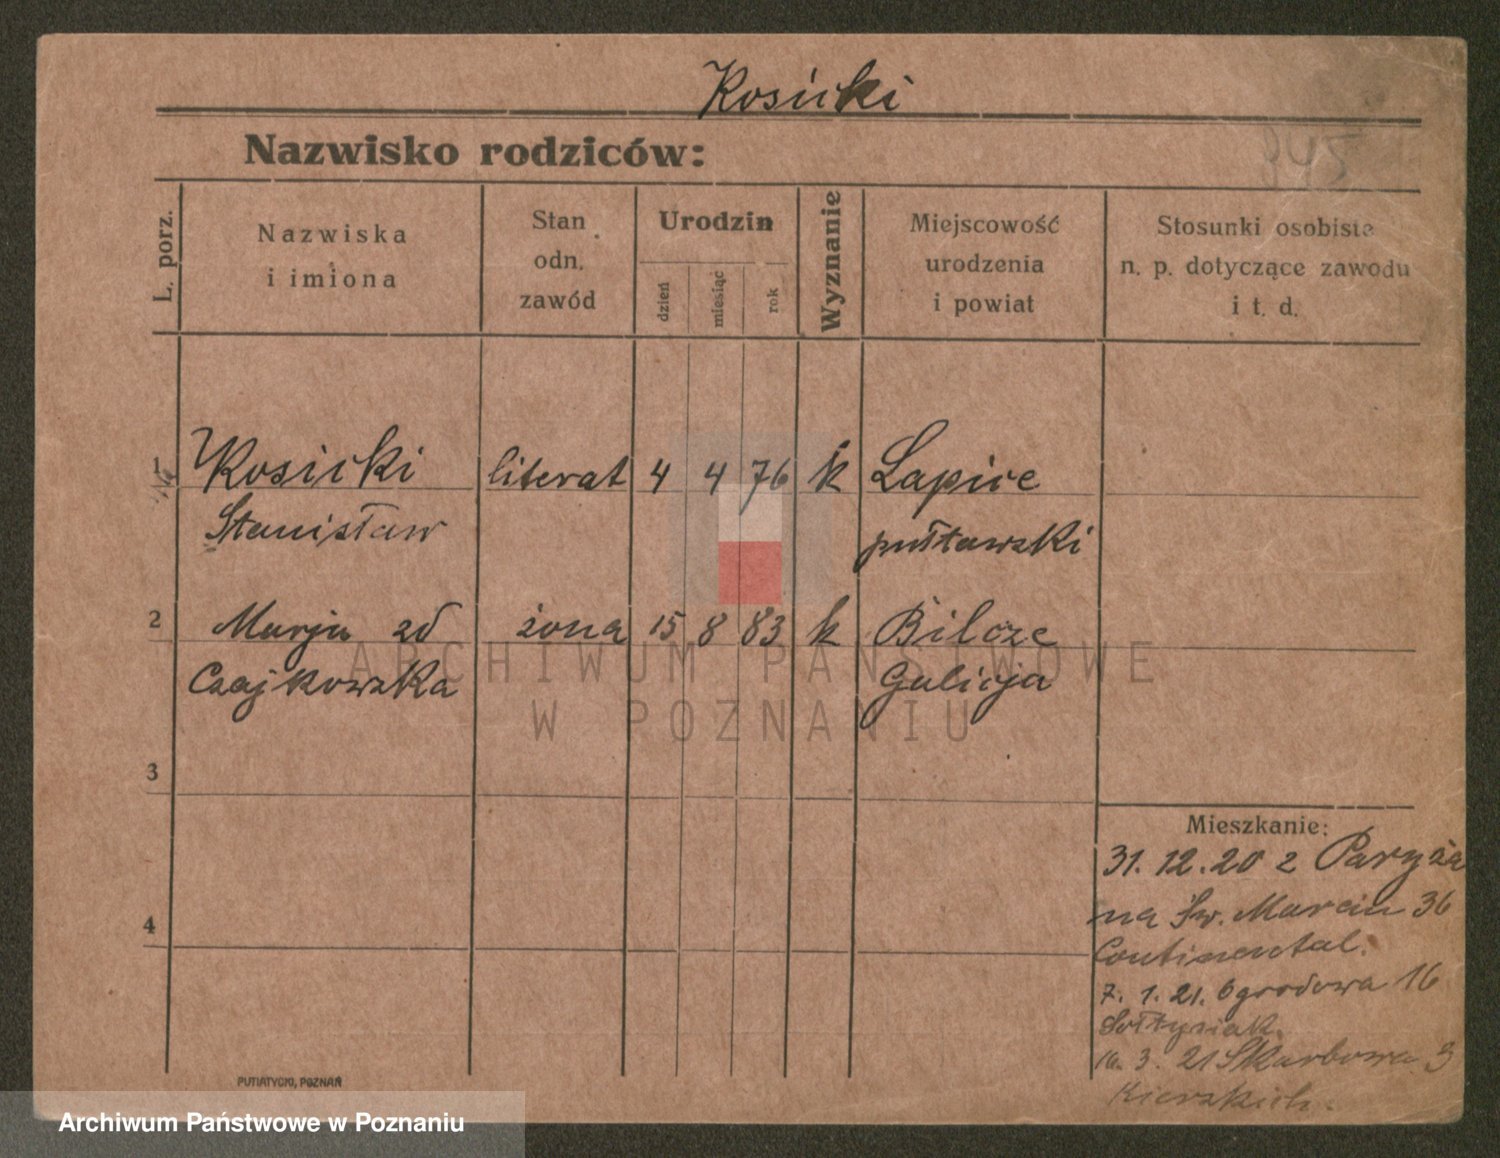 Kosicki
Nazwisko rodziców:
945
L. porz.
Nazwiska
i imiona
Stan
odn.
zawód
Urodzin
dzień
miesiąc
rok
Wyznanie
Miejscowość
urodzenia
i powiat
Stosunki osobiste
n. p. dotyczące zawodu
i t. d.
1 Kosicki literat 4 4 76 k Lapice
Stanisław pułtawski
2 Marja zd żona 15 8 83 k Bilcze
Czajkowska Galicja
3
4
Mieszkanie:
31.12.20 z Paryża
na Św. Marcin 36
Continental.
7. 1. 21. Ogrodowa 16
Sołtysiak.
16. 3. 21 Skarbowa 3
Kierskich.
PUTIATYCKI, POZNAŃ
ARCHIWUM PAŃSTWOWE
W POZNANIU
Archiwum Państwowe w Poznaniu